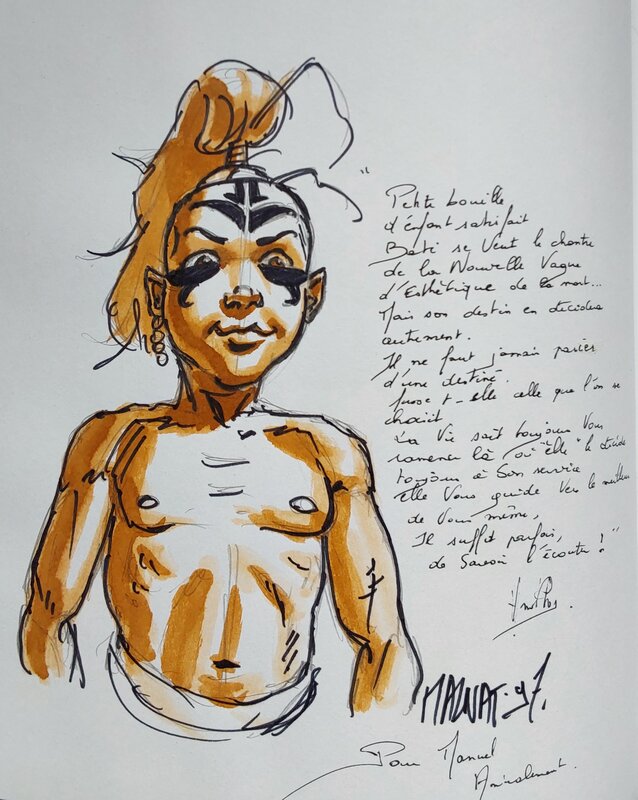 "Petite bouille
d'enfant satisfait
Bati se Veut le chantre
de la Nouvelle Vague
d'Esthétique de la mort...
Mais son destin en décidera
autrement.
Il ne faut jamais parier
d'une destiné.
fusse t-elle celle que l'on se
choisit
La Vie sait toujours Vous
ramener là où "elle" le décide
toujours à Son service
elle Vous guide Vers le meilleur
de Vous même,
Il suffit parfois,
de Savoir l'écouter !"
MAZNAT. 97.
Pour Manuel
Amicalement.